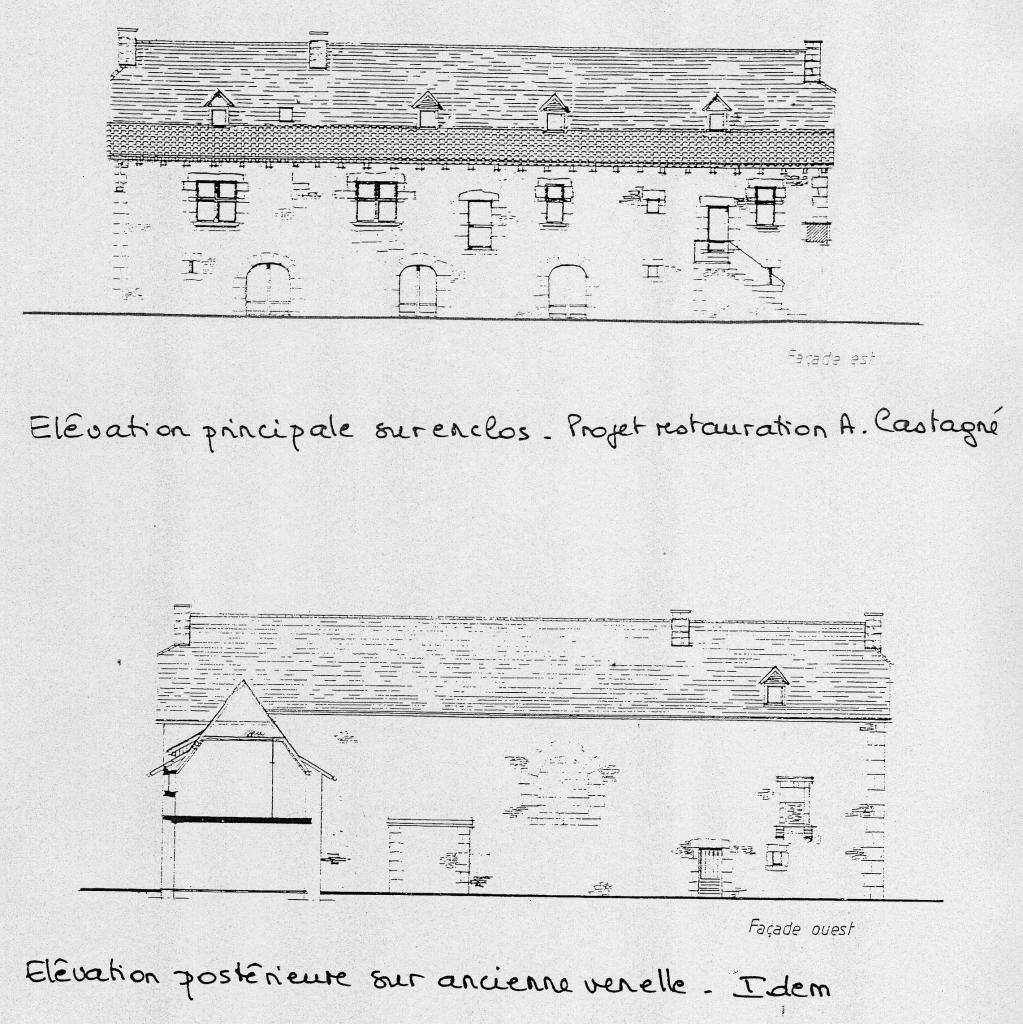 Façade est
Elêvation principale sur enclos - Projet restauration A. Castagné
Façade ouest
Elêvation postêrieure sur ancienne venelle - Idem